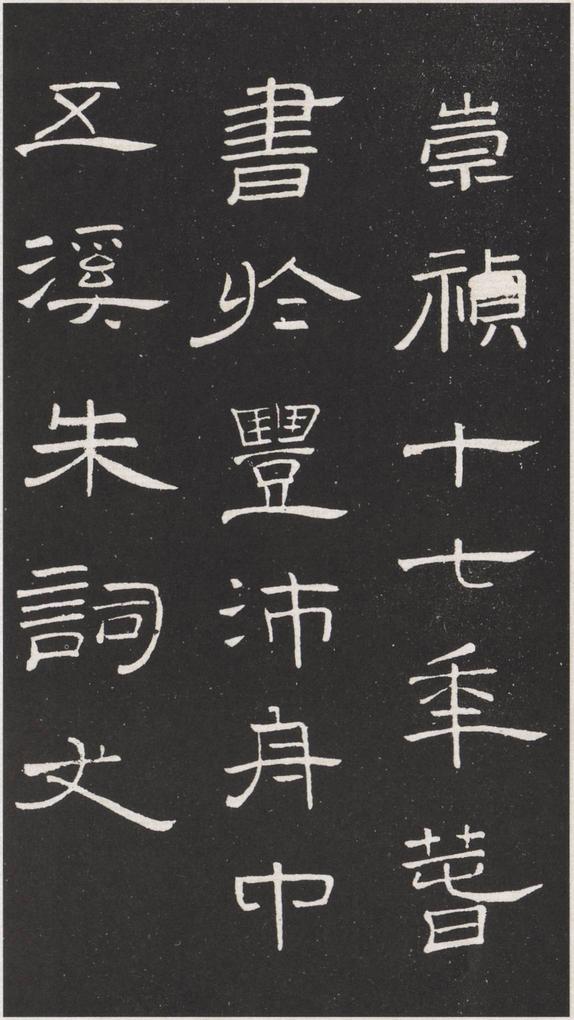 崇禎十七秊萅
書於豐沛舟中
五溪朱詞文